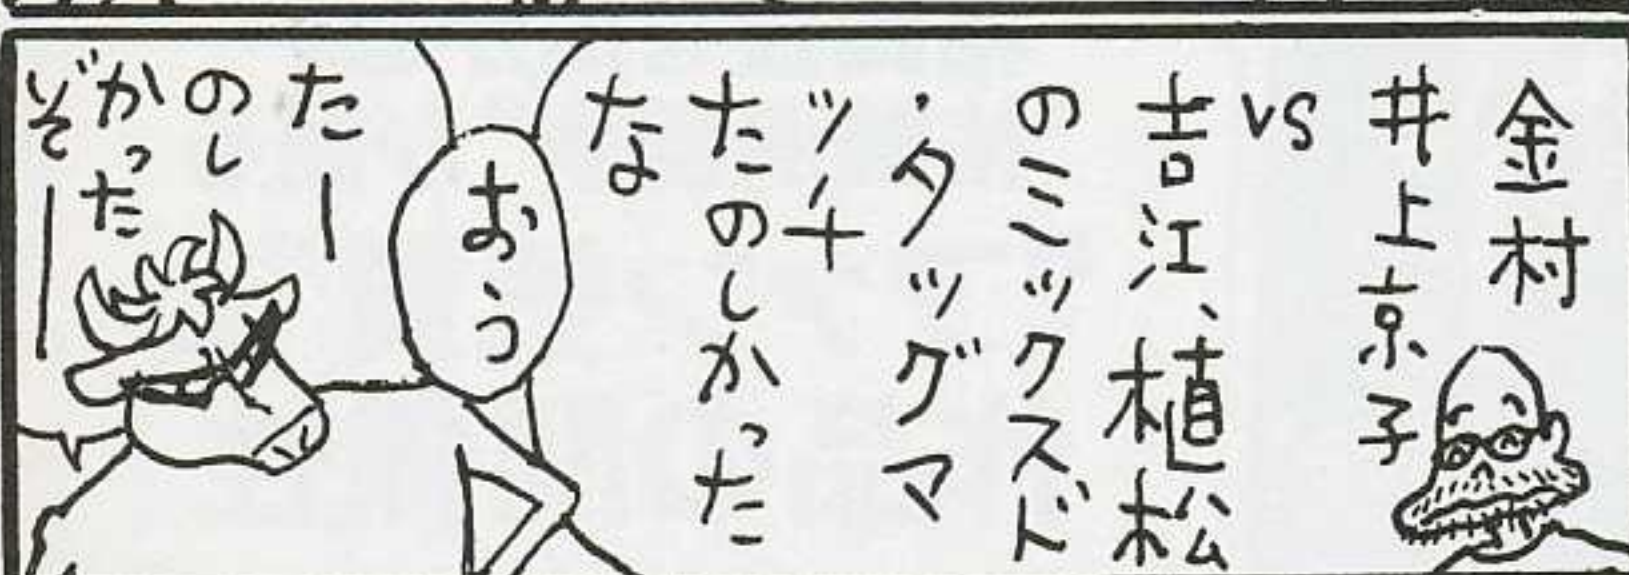 金村
井上京子
vs
吉江、植松
のミックスド
・タッグマ
ッチ
たのしかった
な
おう
たー
のし
かった
ぞー